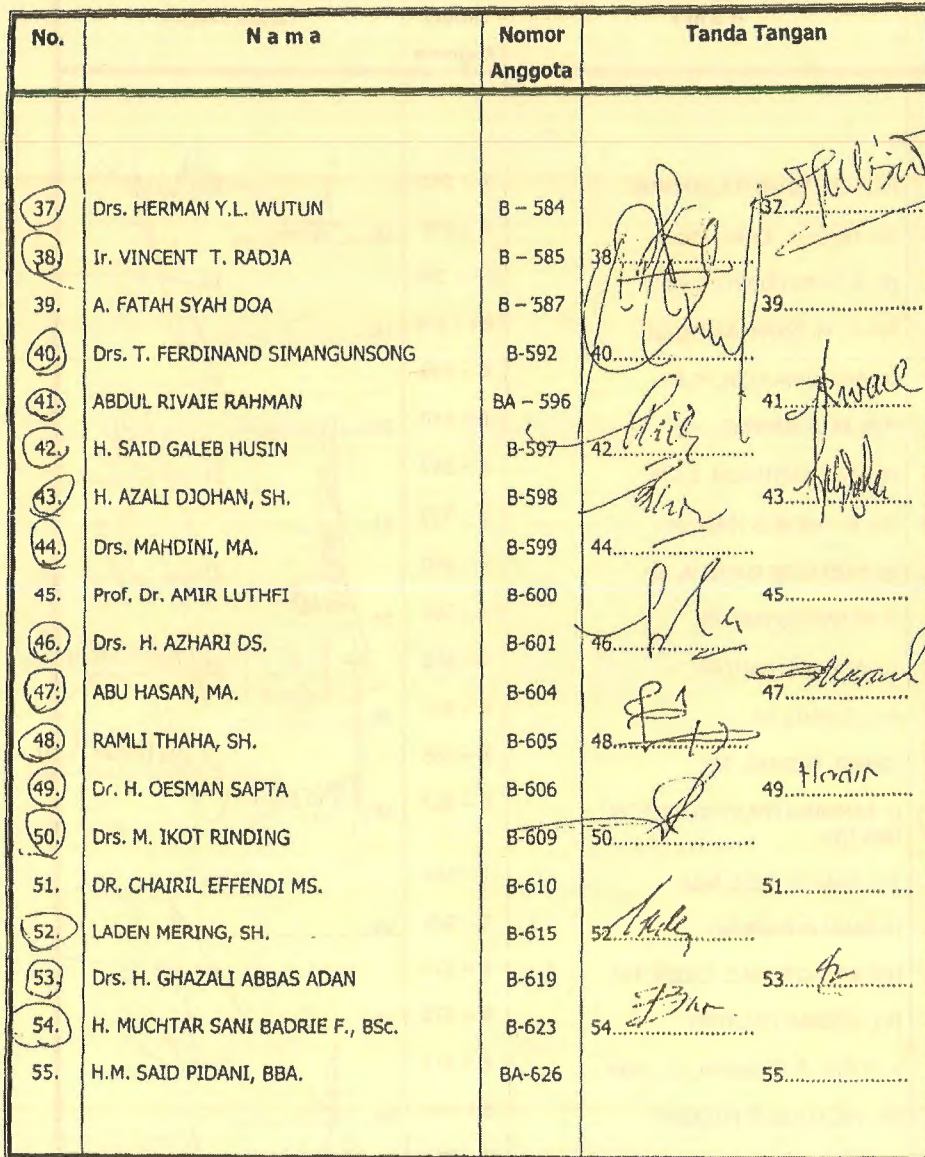 No. N a m a Nomor Anggota Tanda Tangan
37. Drs. HERMAN Y.L. WUTUN B – 584 37..................
38. Ir. VINCENT T. RADJA B – 585 38..................
39. A. FATAH SYAH DOA B – 587 39..................
40. Drs. T. FERDINAND SIMANGUNSONG B-592 40..................
41. ABDUL RIVAIE RAHMAN BA – 596 41..................
42. H. SAID GALEB HUSIN B-597 42..................
43. H. AZALI DJOHAN, SH. B-598 43..................
44. Drs. MAHDINI, MA. B-599 44..................
45. Prof. Dr. AMIR LUTHFI B-600 45..................
46. Drs. H. AZHARI DS. B-601 46..................
47. ABU HASAN, MA. B-604 47..................
48. RAMLI THAHA, SH. B-605 48..................
49. Dr. H. OESMAN SAPTA B-606 49..................
50. Drs. M. IKOT RINDING B-609 50..................
51. DR. CHAIRIL EFFENDI MS. B-610 51..................
52. LADEN MERING, SH. B-615 52..................
53. Drs. H. GHAZALI ABBAS ADAN B-619 53..................
54. H. MUCHTAR SANI BADRIE F., BSc. B-623 54..................
55. H.M. SAID PIDANI, BBA. BA-626 55..................